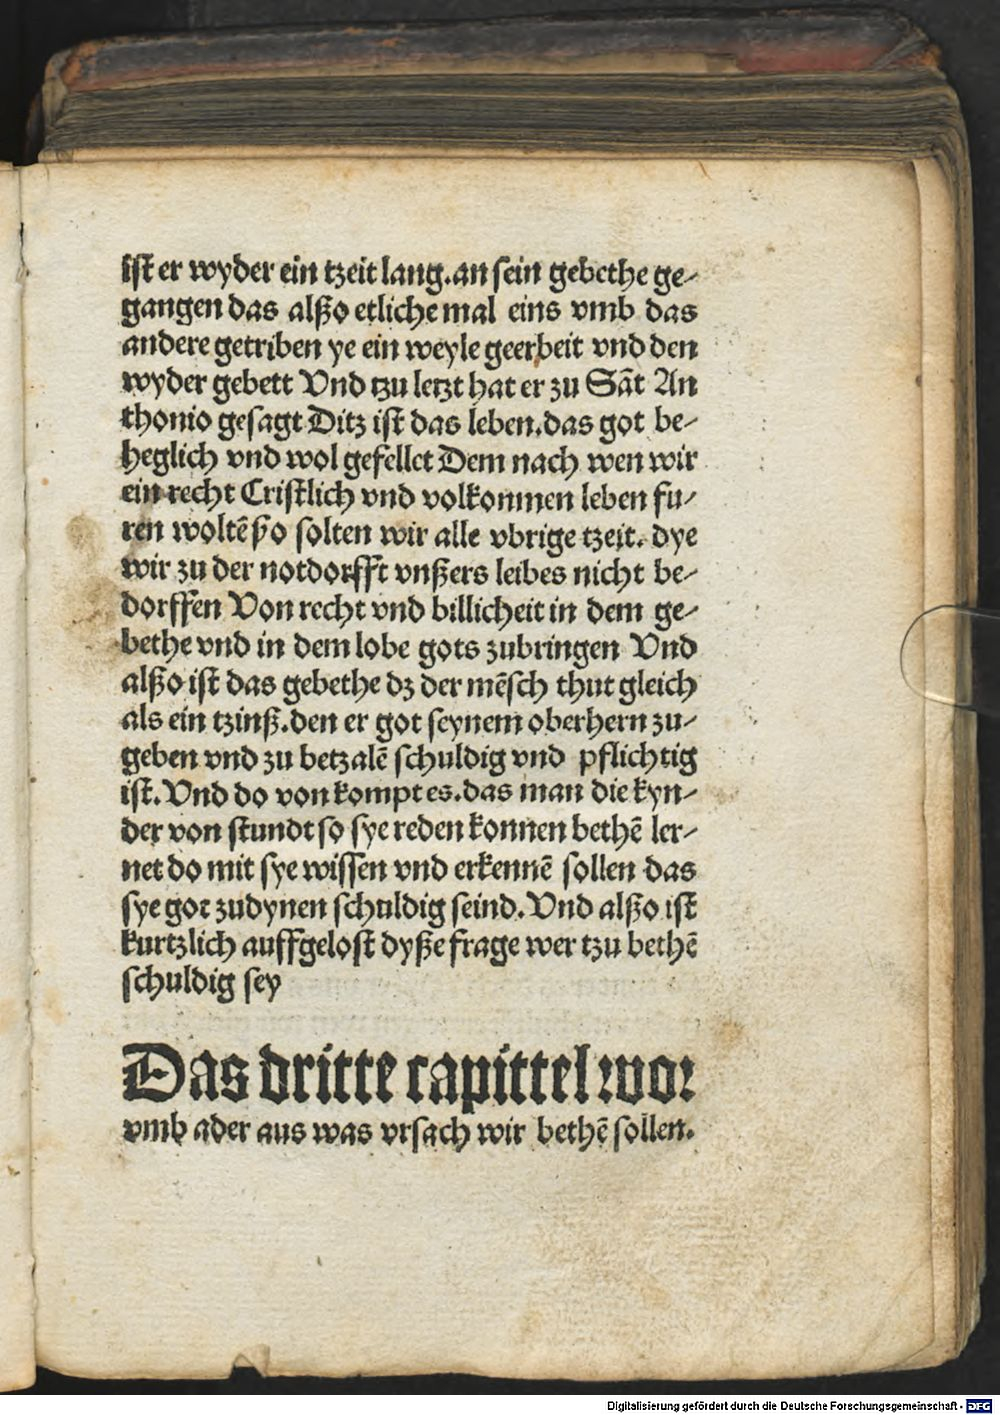 iſt er wyder ein tzeit lang. an ſein gebethe ge-
gangen das alßo etliche mal eins vmb das
andere getriben ye ein weyle geerbeit vnd den
wyder gebett Vnd tzu letzt hat er zu Sāt An
thonio geſagt Ditz iſt das leben. das got be-
heglich vnd wol gefellet Dem nach wen wir
ein recht Criſtlich vnd volkommen leben fu-
ren woltē ßo ſolten wir alle vbrige tzeit. dye
wir zu der notdorfft vnßers leibes nicht be-
dorffen Von recht vnd billicheit in dem ge-
bethe vnd in dem lobe gots zubringen Vnd
alßo iſt das gebethe dz der mēſch thut gleich
als ein tzinß. den er got ſeynem oberhern zu-
geben vnd zu betzalē ſchuldig vnd pflichtig
iſt. Vnd do von kompt es. das man die kyn-
der von ſtundt ſo ſye reden konnen bethē ler-
net do mit ſye wiſſen vnd erkennē ſollen das
ſye got zudynen ſchuldig ſeind. Vnd alßo iſt
kurtzlich auffgeloſt dyße frage wer tzu bethē
ſchuldig ſey
Das dritte capittel wor
vmb ader aus was vrſach wir bethē ſollen.
Digitalisierung gefördert durch die Deutsche Forschungsgemeinschaft - DFG